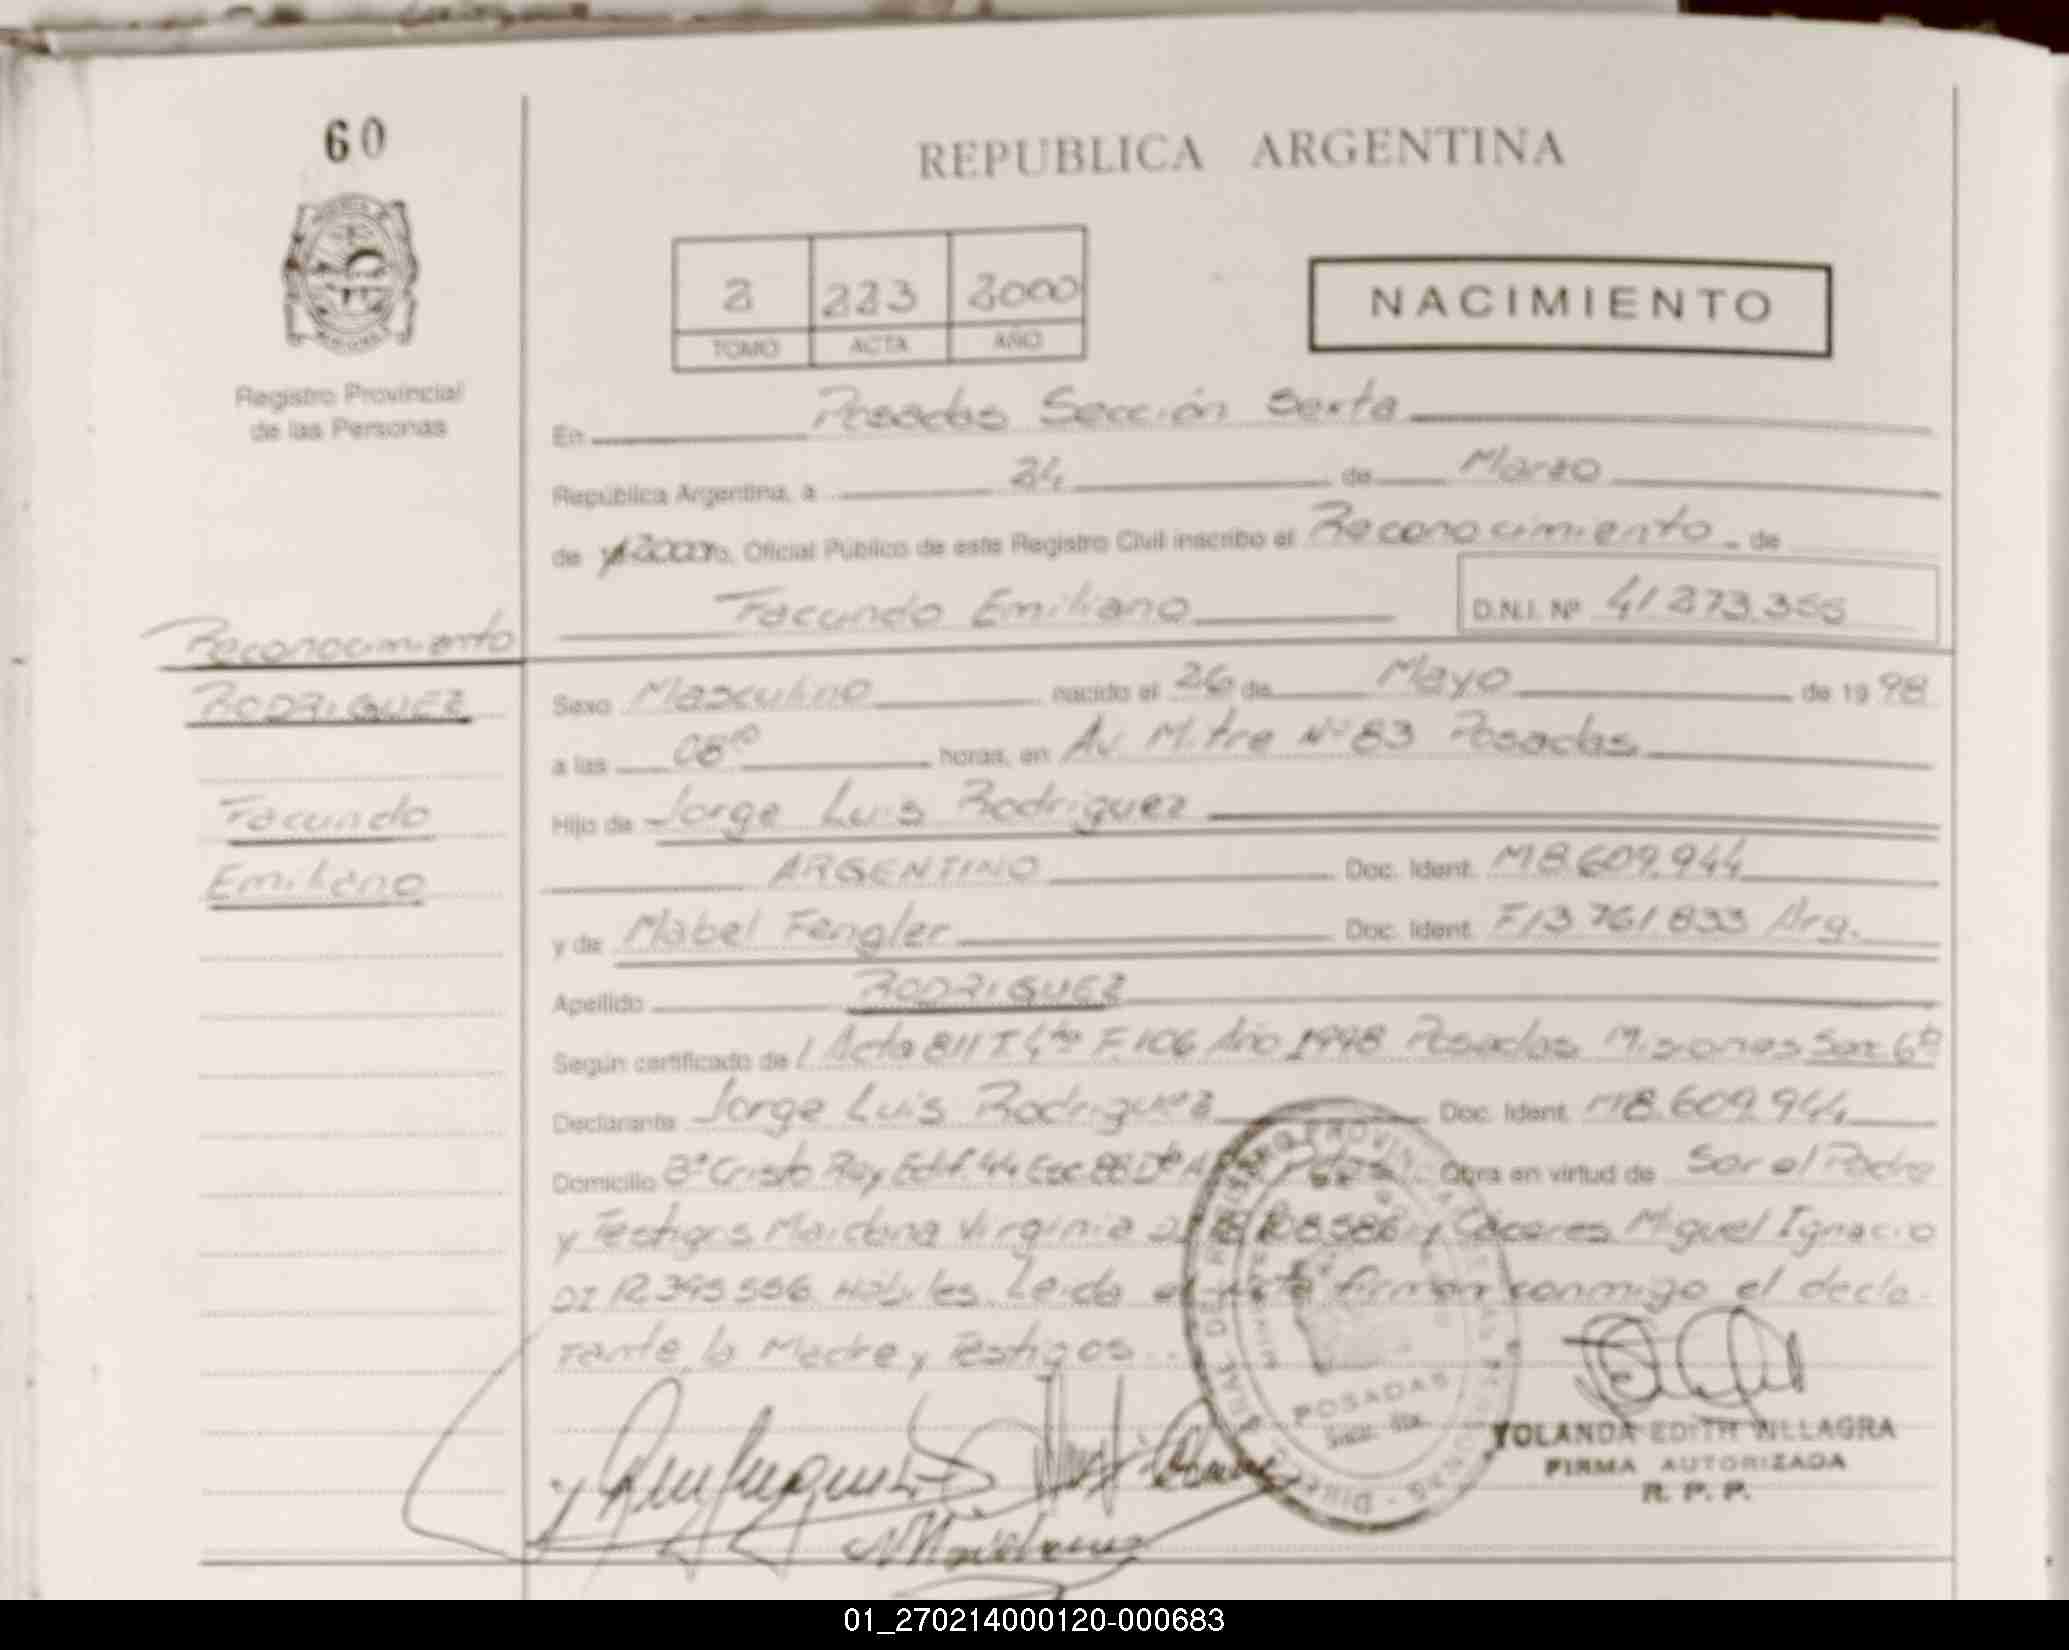 60
REPUBLICA ARGENTINA
2 223 2000
TOMO ACTA AÑO
NACIMIENTO
Registro Provincial
de las Personas
En Posadas Sección Sexta
República Argentina, a 24 de Marzo
de 2000 yo, Oficial Público de este Registro Civil inscribo el Reconocimiento de
Facundo Emiliano D.N.I. Nº 41.273.355
Reconocimiento
RODRIGUEZ
Facundo
Emiliano
Sexo Masculino nacido el 26 de Mayo de 19 98
a las 08 horas, en Av. Mitre Nº 83 Posadas
Hijo de Jorge Luis Rodriguez
ARGENTINO Doc. Ident. M8.609.944
y de Mabel Fengler Doc. Ident. F13 761 833 Arg.
Apellido RODRIGUEZ
Según certificado de Acta 811 T 4to F. 106 Año 1998 Posadas Misiones Secc 6ª
Declarante Jorge Luis Rodriguez Doc. Ident. M8.609.944
Domicilio Bº Cristo Rey Edif. 44 Esc 88 Dto Obra en virtud de Ser el Padre
y Testigos Maidana Virginia y Cáceres Miguel Ignacio
DI 12.395.556 Hábiles Leida el acta firman conmigo el decla-
rante, la Madre y Testigos
POSADAS
YOLANDA EDITH VILLAGRA
FIRMA AUTORIZADA
R. P. P.
01_270214000120-000683